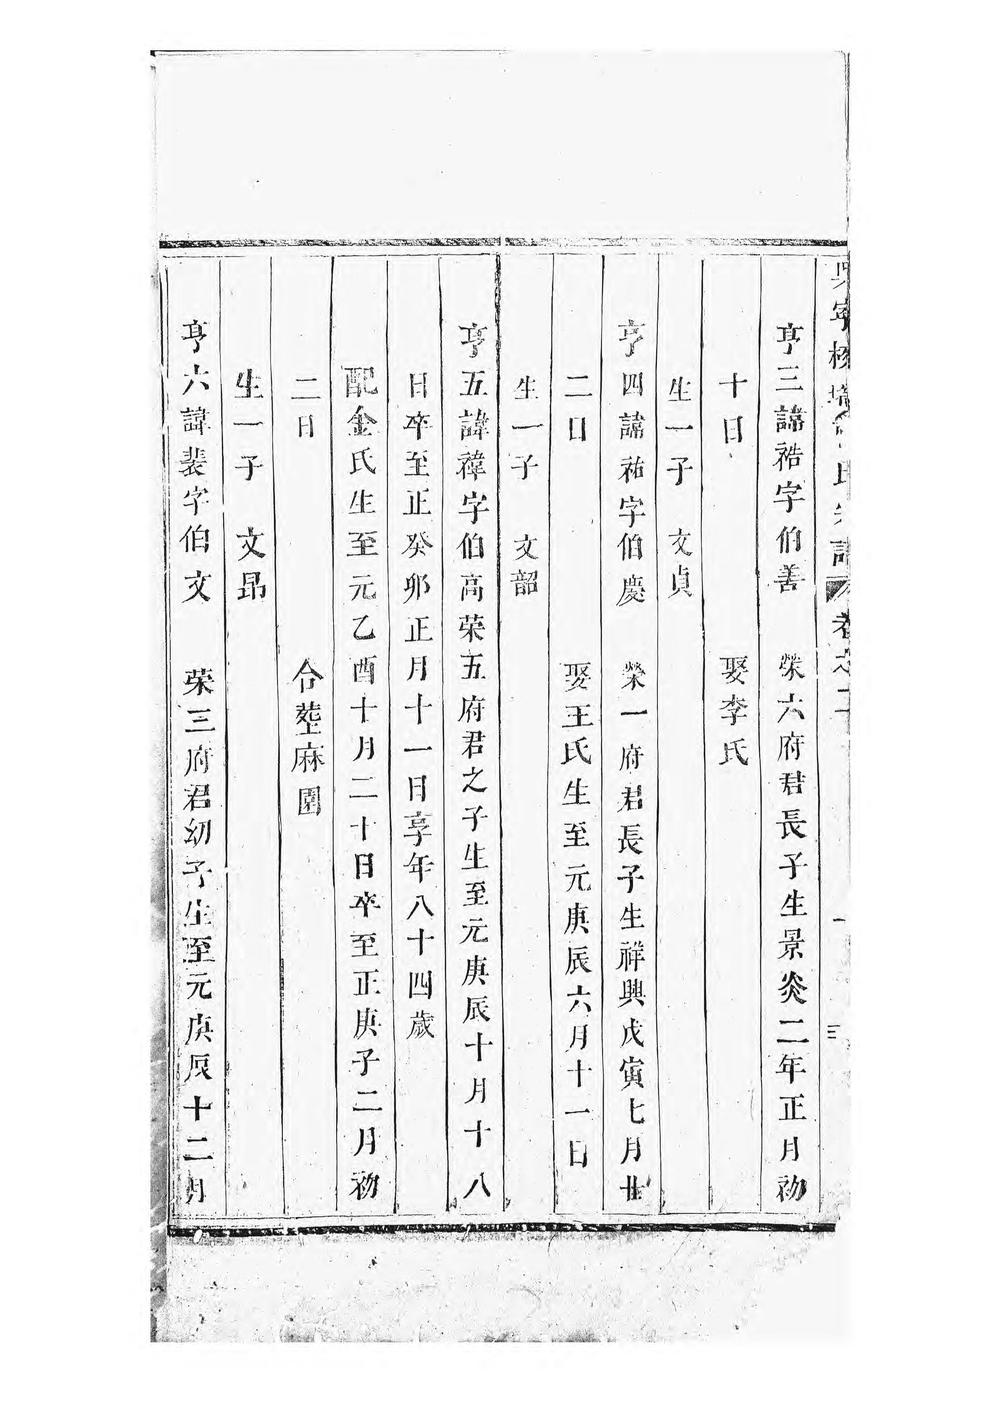 亨三諱祰字伯善　榮六府君長子生景炎二年正月初
十日　娶李氏
生一子　文貞
亨四諱祐字伯慶　榮一府君長子生祥興戊寅七月廿
二日　娶王氏生至元庚辰六月十一日
生一子　文韶
亨五諱禕字伯高榮五府君之子生至元庚辰十月十八
日卒至正癸卯正月十一日享年八十四歲
配金氏生至元乙酉十月二十日卒至正庚子二月初
二日　合塟麻園
生一子　文昂
亨六諱裴字伯文　荣三府君幼子生至元庚辰十二月